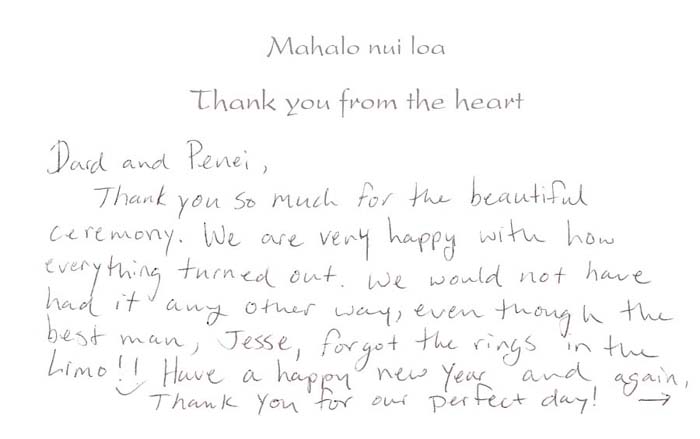 Mahalo nui loa
Thank you from the heart
Dard and Penei,
Thank you so much for the beautiful
ceremony. We are very happy with how
everything turned out. We would not have
had it any other way, even though the
best man, Jesse, forgot the rings in the
limo!! Have a happy new year and again,
Thank you for our perfect day! →